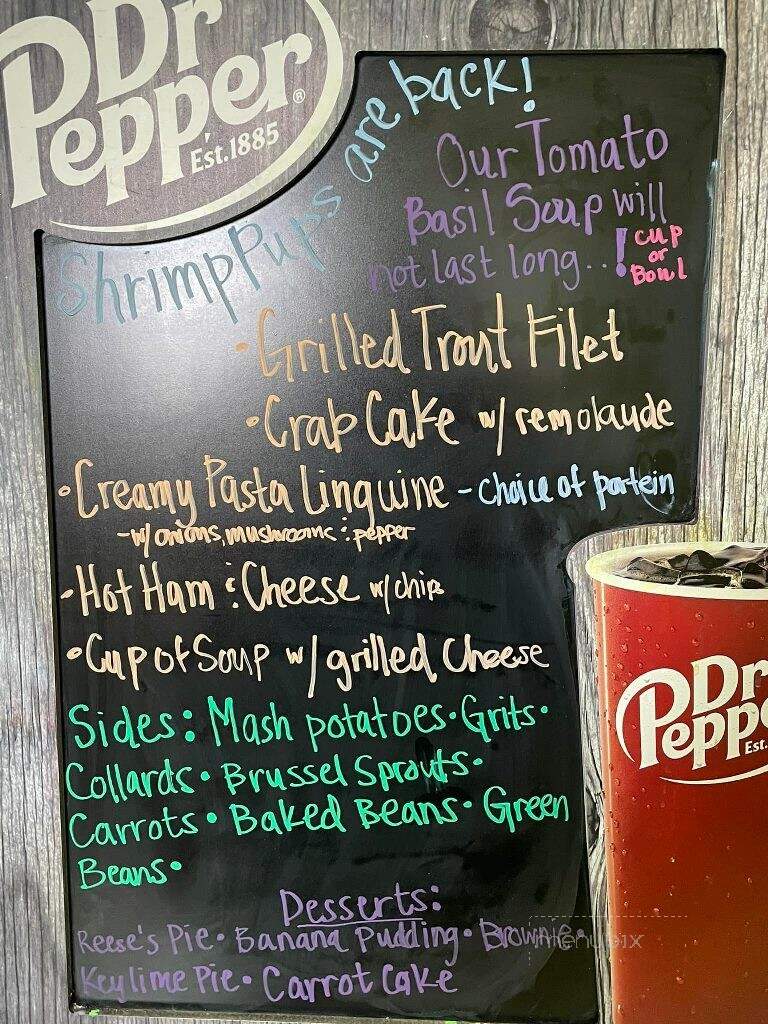 Dr
Pepper®
Est.1885
Shrimp Pups are back!
Our Tomato
Basil Soup will
not last long..!
cup
or
Bowl
•Grilled Trout Filet
•Crab Cake w/ remolaude
•Creamy Pasta Linguine - choice of partein
-w/ onions, mushrooms & pepper
•Hot Ham & Cheese w/ chips
•Cup of Soup w/ grilled Cheese
Sides: Mash potatoes• Grits•
Collards• Brussel Sprouts•
Carrots• Baked Beans• Green
Beans•
Desserts:
Reese's Pie• Banana Pudding• Brownie•
Key lime Pie• Carrot Cake
menupix
Dr
Pepp
Est.